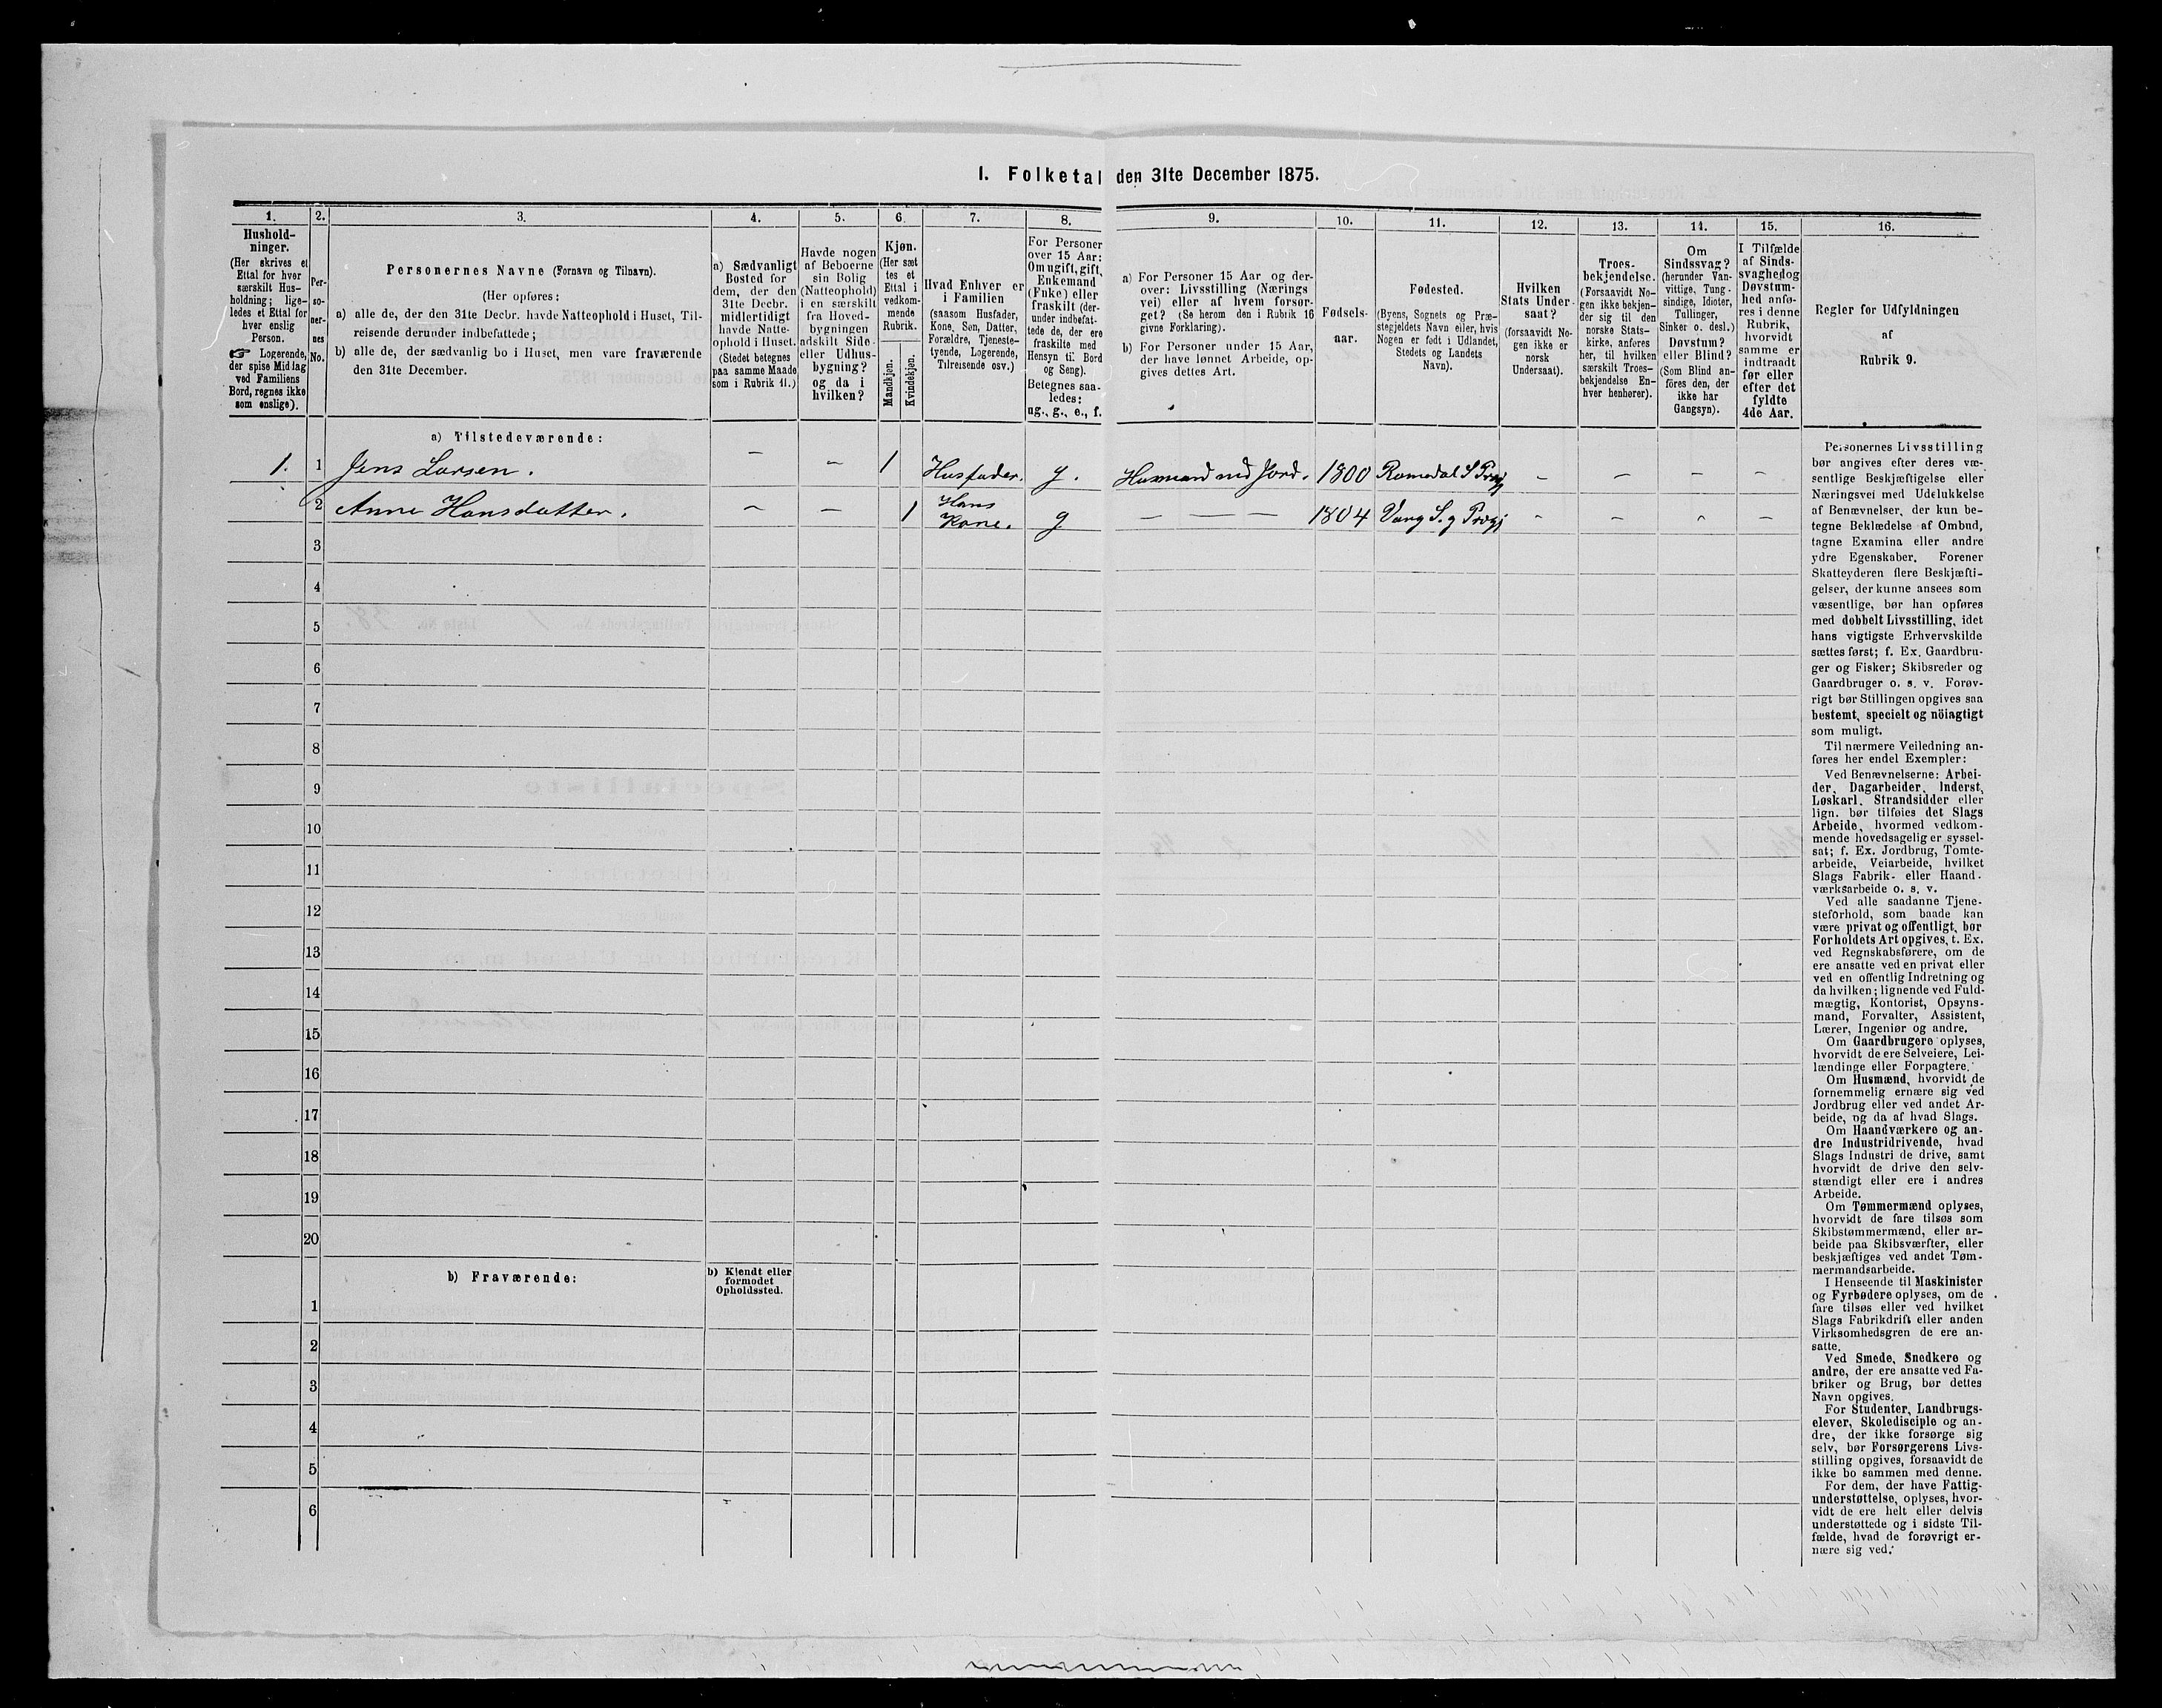 I. Folketal den 31te December 1875.
1.
Hushold-
ninger.
(Her skrives et
Ettal for hver
særskilt Hus-
holdning; lige-
ledes et Ettal for
hver enslig
Person.
☞ Logerende,
der spise Middag
ved Familiens
Bord, regnes ikke
som enslige).
2.
Per-
so-
ner-
nes
No.
3.
Personernes Navne (Fornavn og Tilnavn).
(Her opføres:
a) alle de, der den 31te Decbr. havde Natteophold i Huset, Til-
reisende derunder indbefattede;
b) alle de, der sædvanlig bo i Huset, men vare fraværende
den 31te December.
4.
a) Sædvanligt
Bosted for
dem, der den
31te Decbr.
midlertidigt
havde Natte-
ophold i Huset.
(Stedet betegnes
paa samme Maade
som i Rubrik 11.)
5.
Havde nogen
af Beboerne
sin Bolig
(Natteophold)
i en særskilt
fra Hoved-
bygningen
adskilt Side-
eller Udhus-
bygning?
og da i
hvilken?
6.
Kjøn.
(Her sæt
tes et
Ettal i
vedkom-
mende
Rubrik.
Mandkjøn.
Kvindekjøn.
7.
Hvad Enhver er
i Familien
(saasom Husfader,
Kone, Søn, Datter,
Forældre, Tjeneste-
tyende, Logerende,
Tilreisende osv.)
8.
For Personer
over 15 Aar:
Om ugift, gift,
Enkemand
(Enke) eller
fraskilt (der-
under indbefat-
tede de, der ere
fraskilte med
Hensyn til Bord
og Seng).
Betegnes saa-
ledes:
ug., g., e., f.
9.
a) For Personer 15 Aar og der-
over: Livsstilling (Nærings
vei) eller af hvem forsør-
get? (Se herom den i Rubrik 16
givne Forklaring).
b) For Personer under 15 Aar,
der have lønnet Arbeide, op-
gives dettes Art.
10.
Fødsels-
aar.
11.
Fødested.
(Byens, Sognets og Præ-
stegjeldets Navn eller, hvis
Nogen er født i Udlandet,
Stedets og Landets
Navn).
12.
Hvilken
Stats Under-
saat?
(forsaavidt No-
gen ikke er
norsk
Undersaat).
13.
Troes-
bekjendelse.
(Forsaavidt No-
gen ikke bekjen-
der sig til den
norske Stats-
kirke, anføres
her, til hvilken
særskilt Troes-
bekjendelse En-
hver henhører).
14.
Om
Sindssvag?
(herunder Van-
vittige, Tung-
sindige, Idioter,
Tullinger,
Sinker o. desl.)
Døvstum?
eller Blind?
(Som Blind an-
föres den, der
ikke har
Gangsyn).
15.
I Tilfælde
af Sinds-
svaghed og
Døvstum-
hed anfø-
res i denne
Rubrik,
hvorvidt
samme er
indtraadt
før eller
efter det
fyldte
4de Aar.
16.
Regler for Udfyldningen
af
Rubrik 9.
a) Tilstedeværende:
1. 1 Jens Larsen. – – 1 Husfader. g. Husmand med Jord. 1800 Romedal S Prægj – – – –
2 Anne Hansdatter. – – 1 Hans Kone. g – – – 1804 Vang S. g Prægj – – – –
3
4
5
6
7
8
9
10
11
12
13
14
15
16
17
18
19
20
b) Fraværende:
b) Kjendt eller
formodet
Opholdssted.
1
2
3
4
5
6
Personernes Livsstilling
bør angives efter deres væ-
sentlige Beskjæftigelse eller
Næringsvei med Udelukkelse
af Benævnelser, der kun be-
tegne Beklædelse af Ombud,
tagne Examina eller andre
ydre Egenskaber. Forener
Skatteyderen flere Beskjæfti-
gelser, der kunne ansees som
væsentlige, bør han opføres
med dobbelt Livsstilling, idet
hans vigtigste Erhvervskilde
sættes først; f. Ex. Gaardbru-
ger og Fisker; Skibsreder og
Gaardbruger o. s. v. Forøv-
rigt bør Stillingen opgives saa
bestemt, specielt og nöiagtigt
som muligt.
Til nærmere Veiledning an-
føres her endel Exempler:
Ved Benævnelserne: Arbei-
der, Dagarbeider, Inderst,
Løskarl, Strandsidder eller
lign. bør tilføies det Slags
Arbeide, hvormed vedkom-
mende hovedsagelig er syssel-
sat; f. Ex. Jordbrug, Tomte-
arbeide, Veiarbeide, hvilket
Slags Fabrik- eller Haand-
værksarbeide o. s. v.
Ved alle saadanne Tjene-
steforhold, som baade kan
være privat og offentligt, bør
Forholdets Art opgives, t. Ex.
ved Regnskabsførere, om de
ere ansatte ved en privat eller
ved en offentlig Indretning og
da hvilken; lignende ved Fuld-
mægtig, Kontorist, Opsyns-
mand, Forvalter, Assistent,
Lærer, Ingeniør og andre.
Om Gaardbrugere oplyses,
hvorvidt de ere Selveiere, Lei-
lændinge eller Forpagtere.
Om Husmænd, hvorvidt de
fornemmelig ernære sig ved
Jordbrug eller ved andet Ar-
beide, og da af hvad Slags.
Om Haandværkere og an-
dre Industridrivende, hvad
Slags Industri de drive, samt
hvorvidt de drive den selv-
stændigt eller ere i andres
Arbeide.
Om Tømmermænd oplyses,
hvorvidt de fare tilsøs som
Skibstømmermænd, eller ar-
beide paa Skibsværfter, eller
beskjæftiges ved andet Tøm-
mermandsarbeide.
I Henseende til Maskinister
og Fyrbødere oplyses, om de
fare tilsøs eller ved hvilket
Slags Fabrikdrift eller anden
Virksomhedsgren de ere an-
satte.
Ved Smede, Snedkere og
andre, der ere ansatte ved Fa-
briker og Brug, bør dettes
Navn opgives.
For Studenter, Landbrugs-
elever, Skoledisciple og an-
dre, der ikke forsørge sig
selv, bør Forsørgerens Livs-
stilling opgives, forsaavidt de
ikke bo sammen med denne.
For dem, der have Fattig-
understøttelse, oplyses, hvor-
vidt de ere helt eller delvis
understøttede og i sidste Til-
fælde, hvad de forøvrigt er-
nære sig ved.